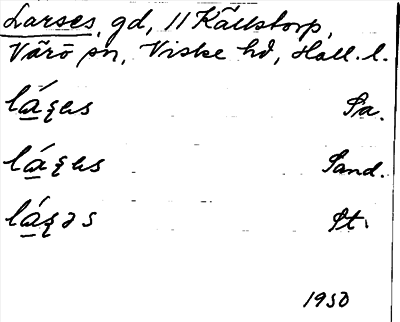 Larses, gd, 11 Källstorp,
Värö sn, Viske hd, Hall. l.
lá̱ʂɐs Sa.
lá̱ʂɐs Sand.
lá̱ʂəs St.
1950